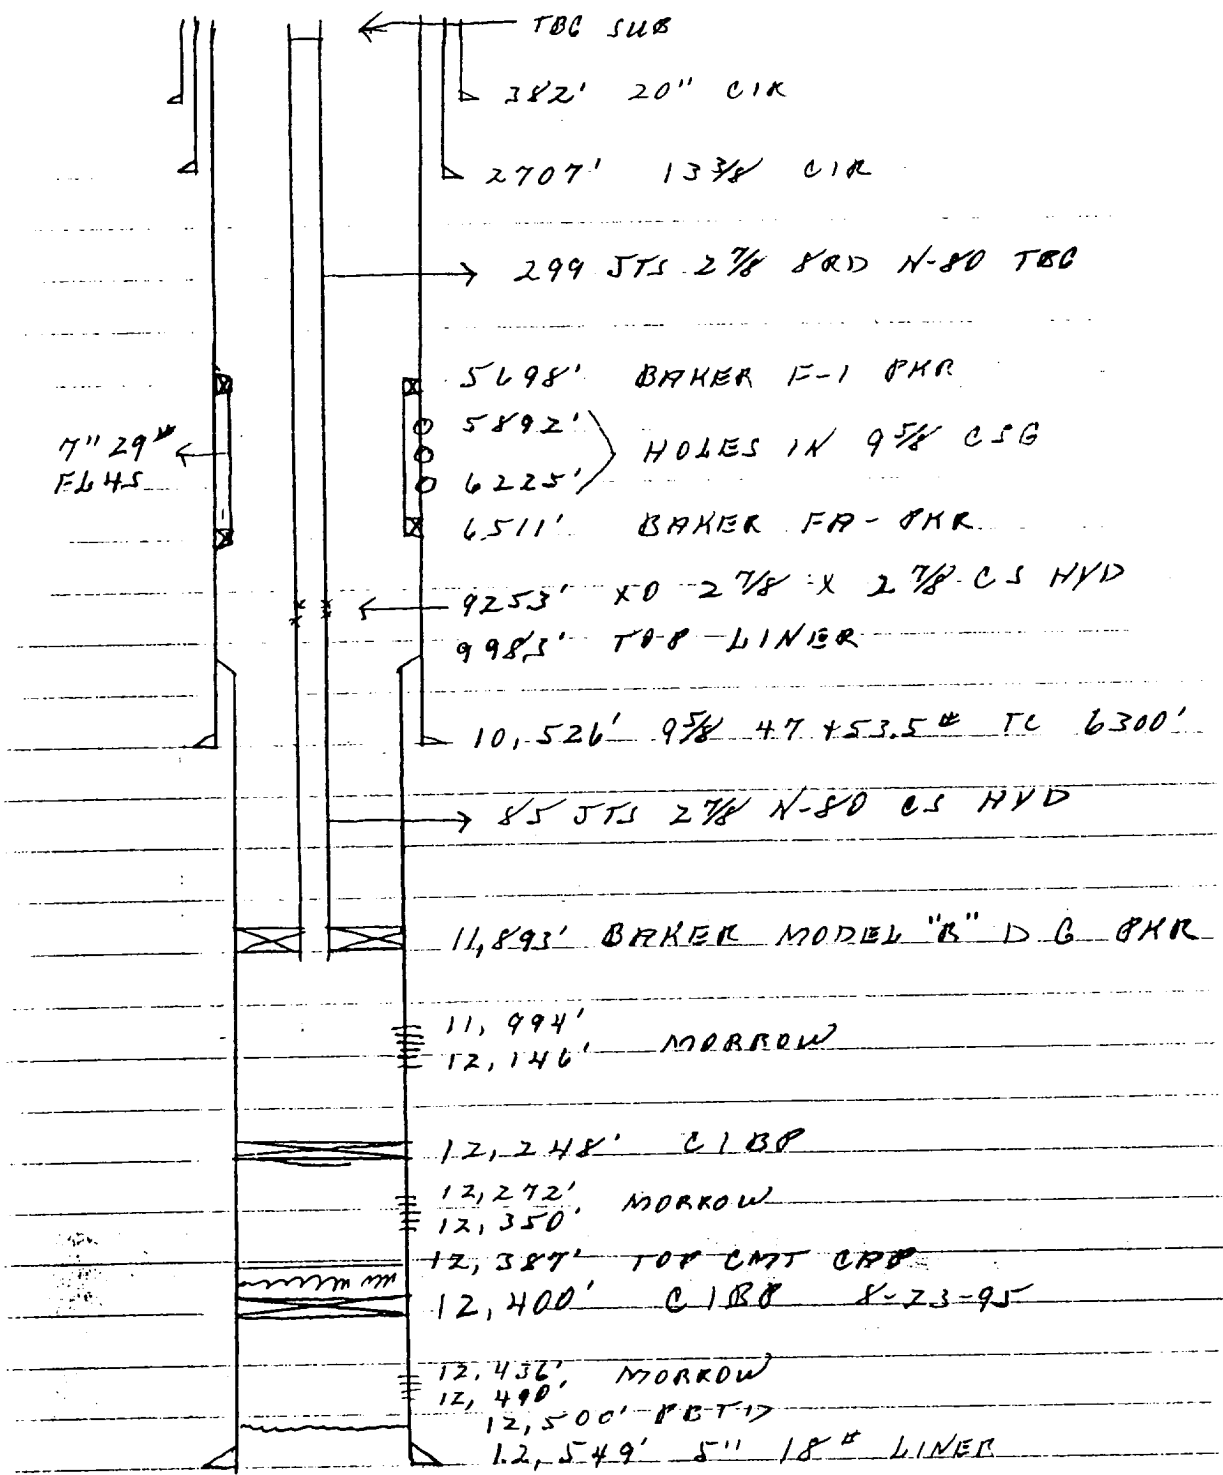 TBG SUB
382' 20" CIR
2707' 13 3/8 CIR
299 JTS 2 7/8 8RD N-80 TBG
5698' BAKER F-1 PKR
5892'
HOLES IN 9 5/8 CSG
6225'
7" 29#
FL4S
6511' BAKER FA- PKR
9253' XO 2 7/8 X 2 7/8 CS HYD
9983' TOP LINER
10,526' 9 5/8 47 +53.5# TC 6300'
85 JTS 2 7/8 N-80 CS HYD
11,893' BAKER MODEL "B" D G PKR
11,994'
12,146' MORROW
12,248' CIBP
12,272' MORROW
12,350'
12,387' TOP CMT CAP
12,400' CIBP 8-23-95
12,436' MORROW
12,490'
12,500' PBTD
12,549' 5" 18# LINER